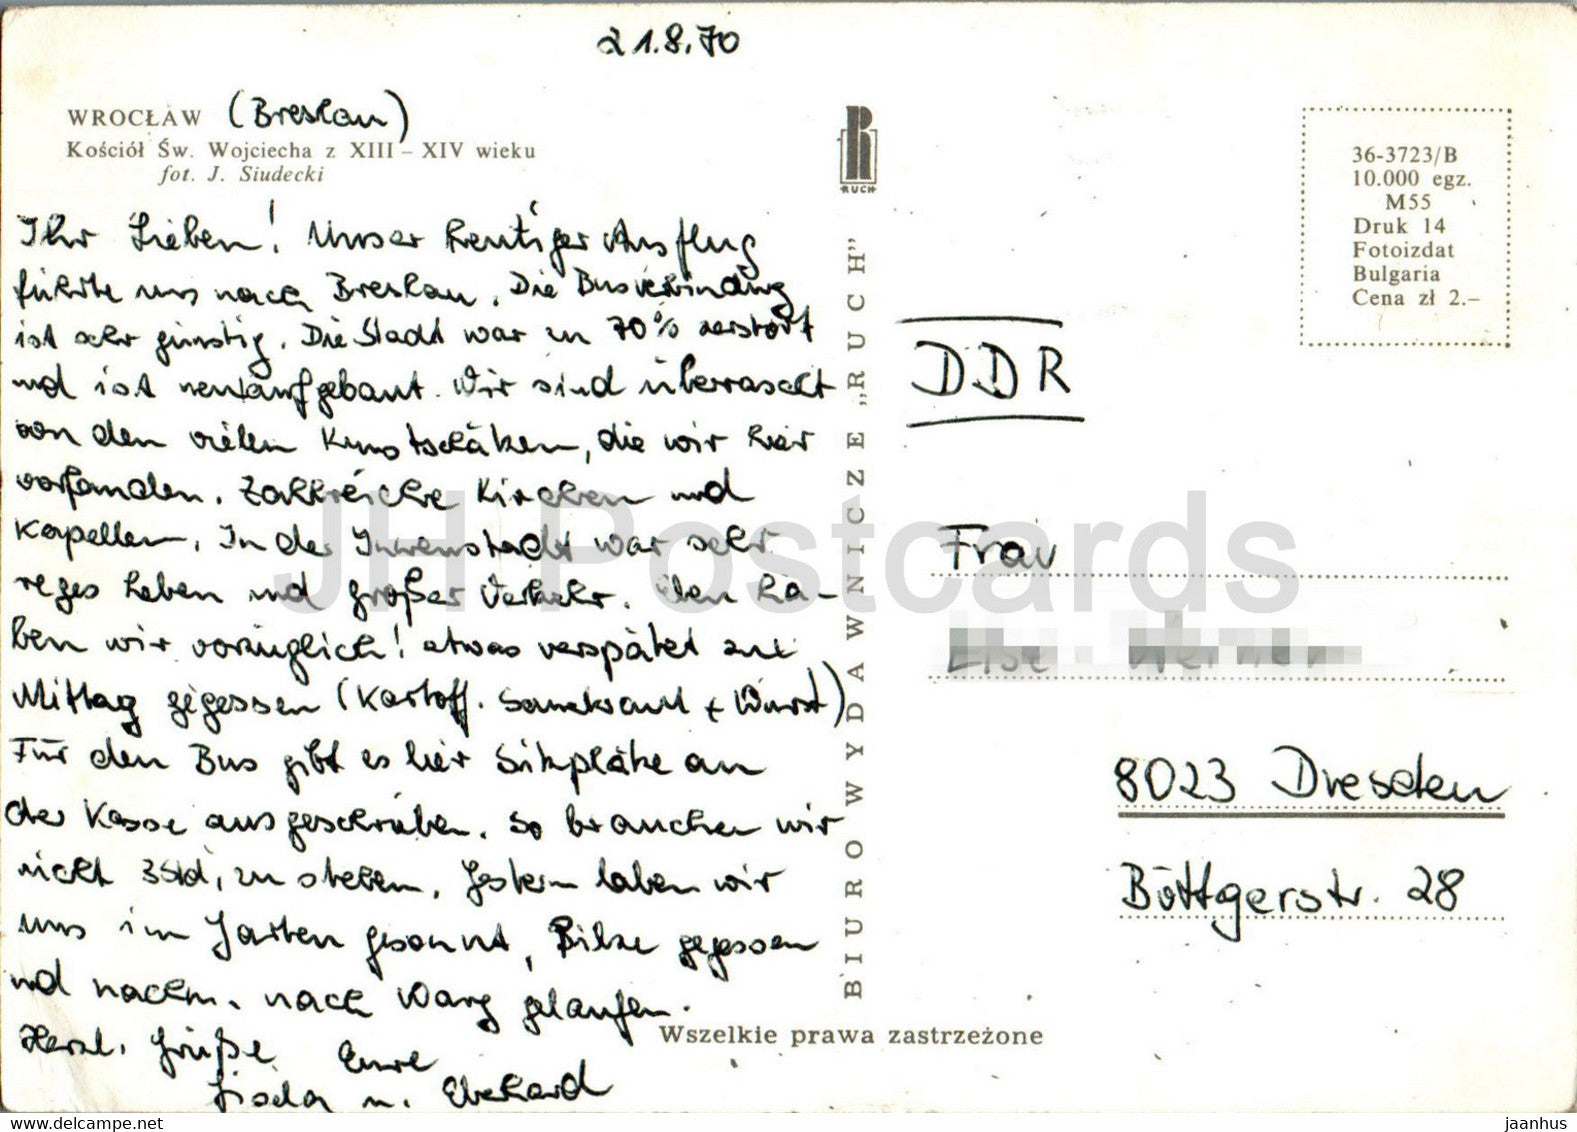 21.8.70
WROCŁAW (Breslau)
Kościół Św. Wojciecha z XIII – XIV wieku
fot. J. Siudecki
Ihr Lieben! Unser heutiger Ausflug
führte uns nach Breslau. Die Busverbindung
ist sehr günstig. Die Stadt war zu 70% zerstört
und ist neu aufgebaut. Wir sind überrascht
von den vielen Kunstschätzen, die wir hier
vorfanden. Zahlreiche Kirchen und
Kapellen. In der Innenstadt war sehr
reges Leben und großer Verkehr. Eben ha-
ben wir vorzüglich! etwas verspätet zu
Mittag gegessen (Kartoff. Sauerkraut + Wurst)
Für den Bus gibt es hier Sitzplätze an
der Kasse ausgeschrieben. So brauchen wir
nicht 3 Std. zu stehen. Gestern haben wir
uns im Garten gesonnt, Pilze gegessen
und nachm. nach Wang gelaufen.
Herzl. Grüße Eure
Gisela u. Eberhard
BIURO WYDAWNICZE „RUCH”
RUCH
36-3723/B
10.000 egz.
M55
Druk 14
Fotoizdat
Bulgaria
Cena zł 2.–
DDR
Frau
8023 Dresden
Böttgerstr. 28
Wszelkie prawa zastrzeżone
JH Postcards
delcampe.net
jaanhus